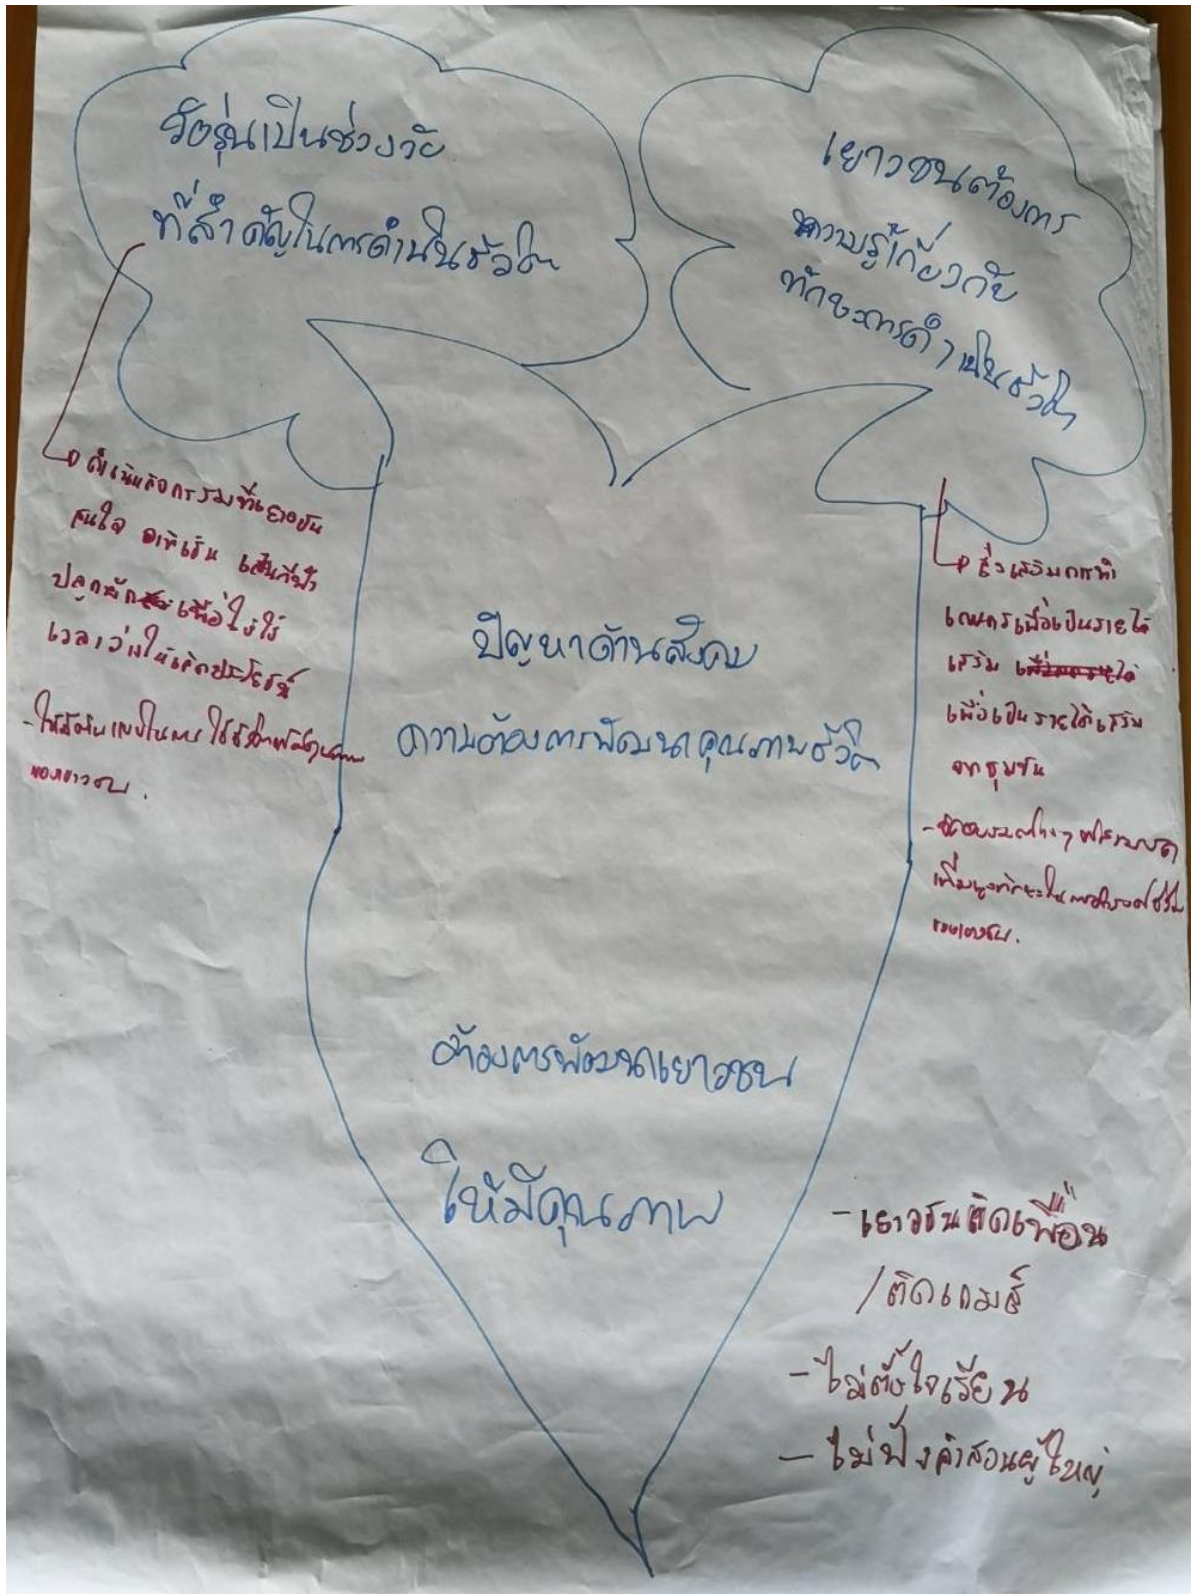 วัยรุ่นเป็นช่วงวัย
ที่สำคัญในการดำเนินชีวิต
เยาวชนต้องการ
ความรู้เกี่ยวกับ
ทักษะการดำเนินชีวิต
ดำเนินกิจกรรมที่เยาวชน
สนใจ อาทิเช่น เล่นกีฬา
ปลูกผัก เพื่อให้ใช้
เวลาว่างให้เกิดประโยชน์
ของเยาวชน.
ปัญหาด้านสังคม
ความต้องการพัฒนาคุณภาพชีวิต
ต้องการพัฒนาเยาวชน
ให้มีคุณภาพ
ส่งเสริมการทำ
เกษตรเพื่อเป็นรายได้
เสริม
เพื่อเป็นรายได้เสริม
จากชุมชน
- เยาวชนติดเพื่อน
/ติดเกมส์
- ไม่ตั้งใจเรียน
- ไม่ฟังคำสอนผู้ใหญ่